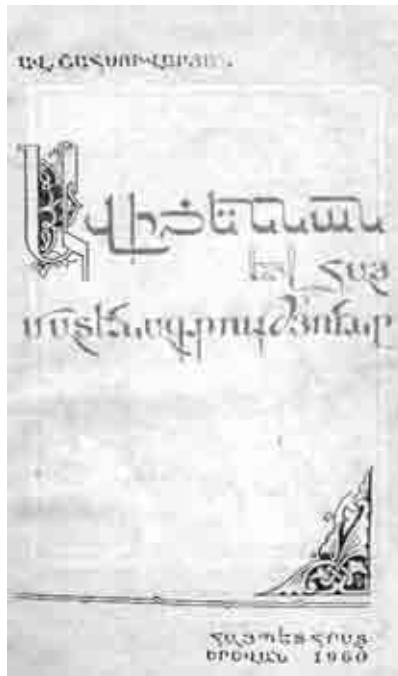 ԱՎ. ՇԱՀՍՈՒՎԱՐՅԱՆ
Ավիցեննան
եվ հայ
մատենագրությունը
ՀԱՅՊԵՏՀՐԱՏ
ԵՐԵՎԱՆ 1960